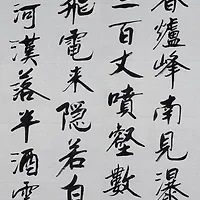 香爐峰南見瀑
三百丈噴壑數
飛電来隐若白
河漢落半洒雲